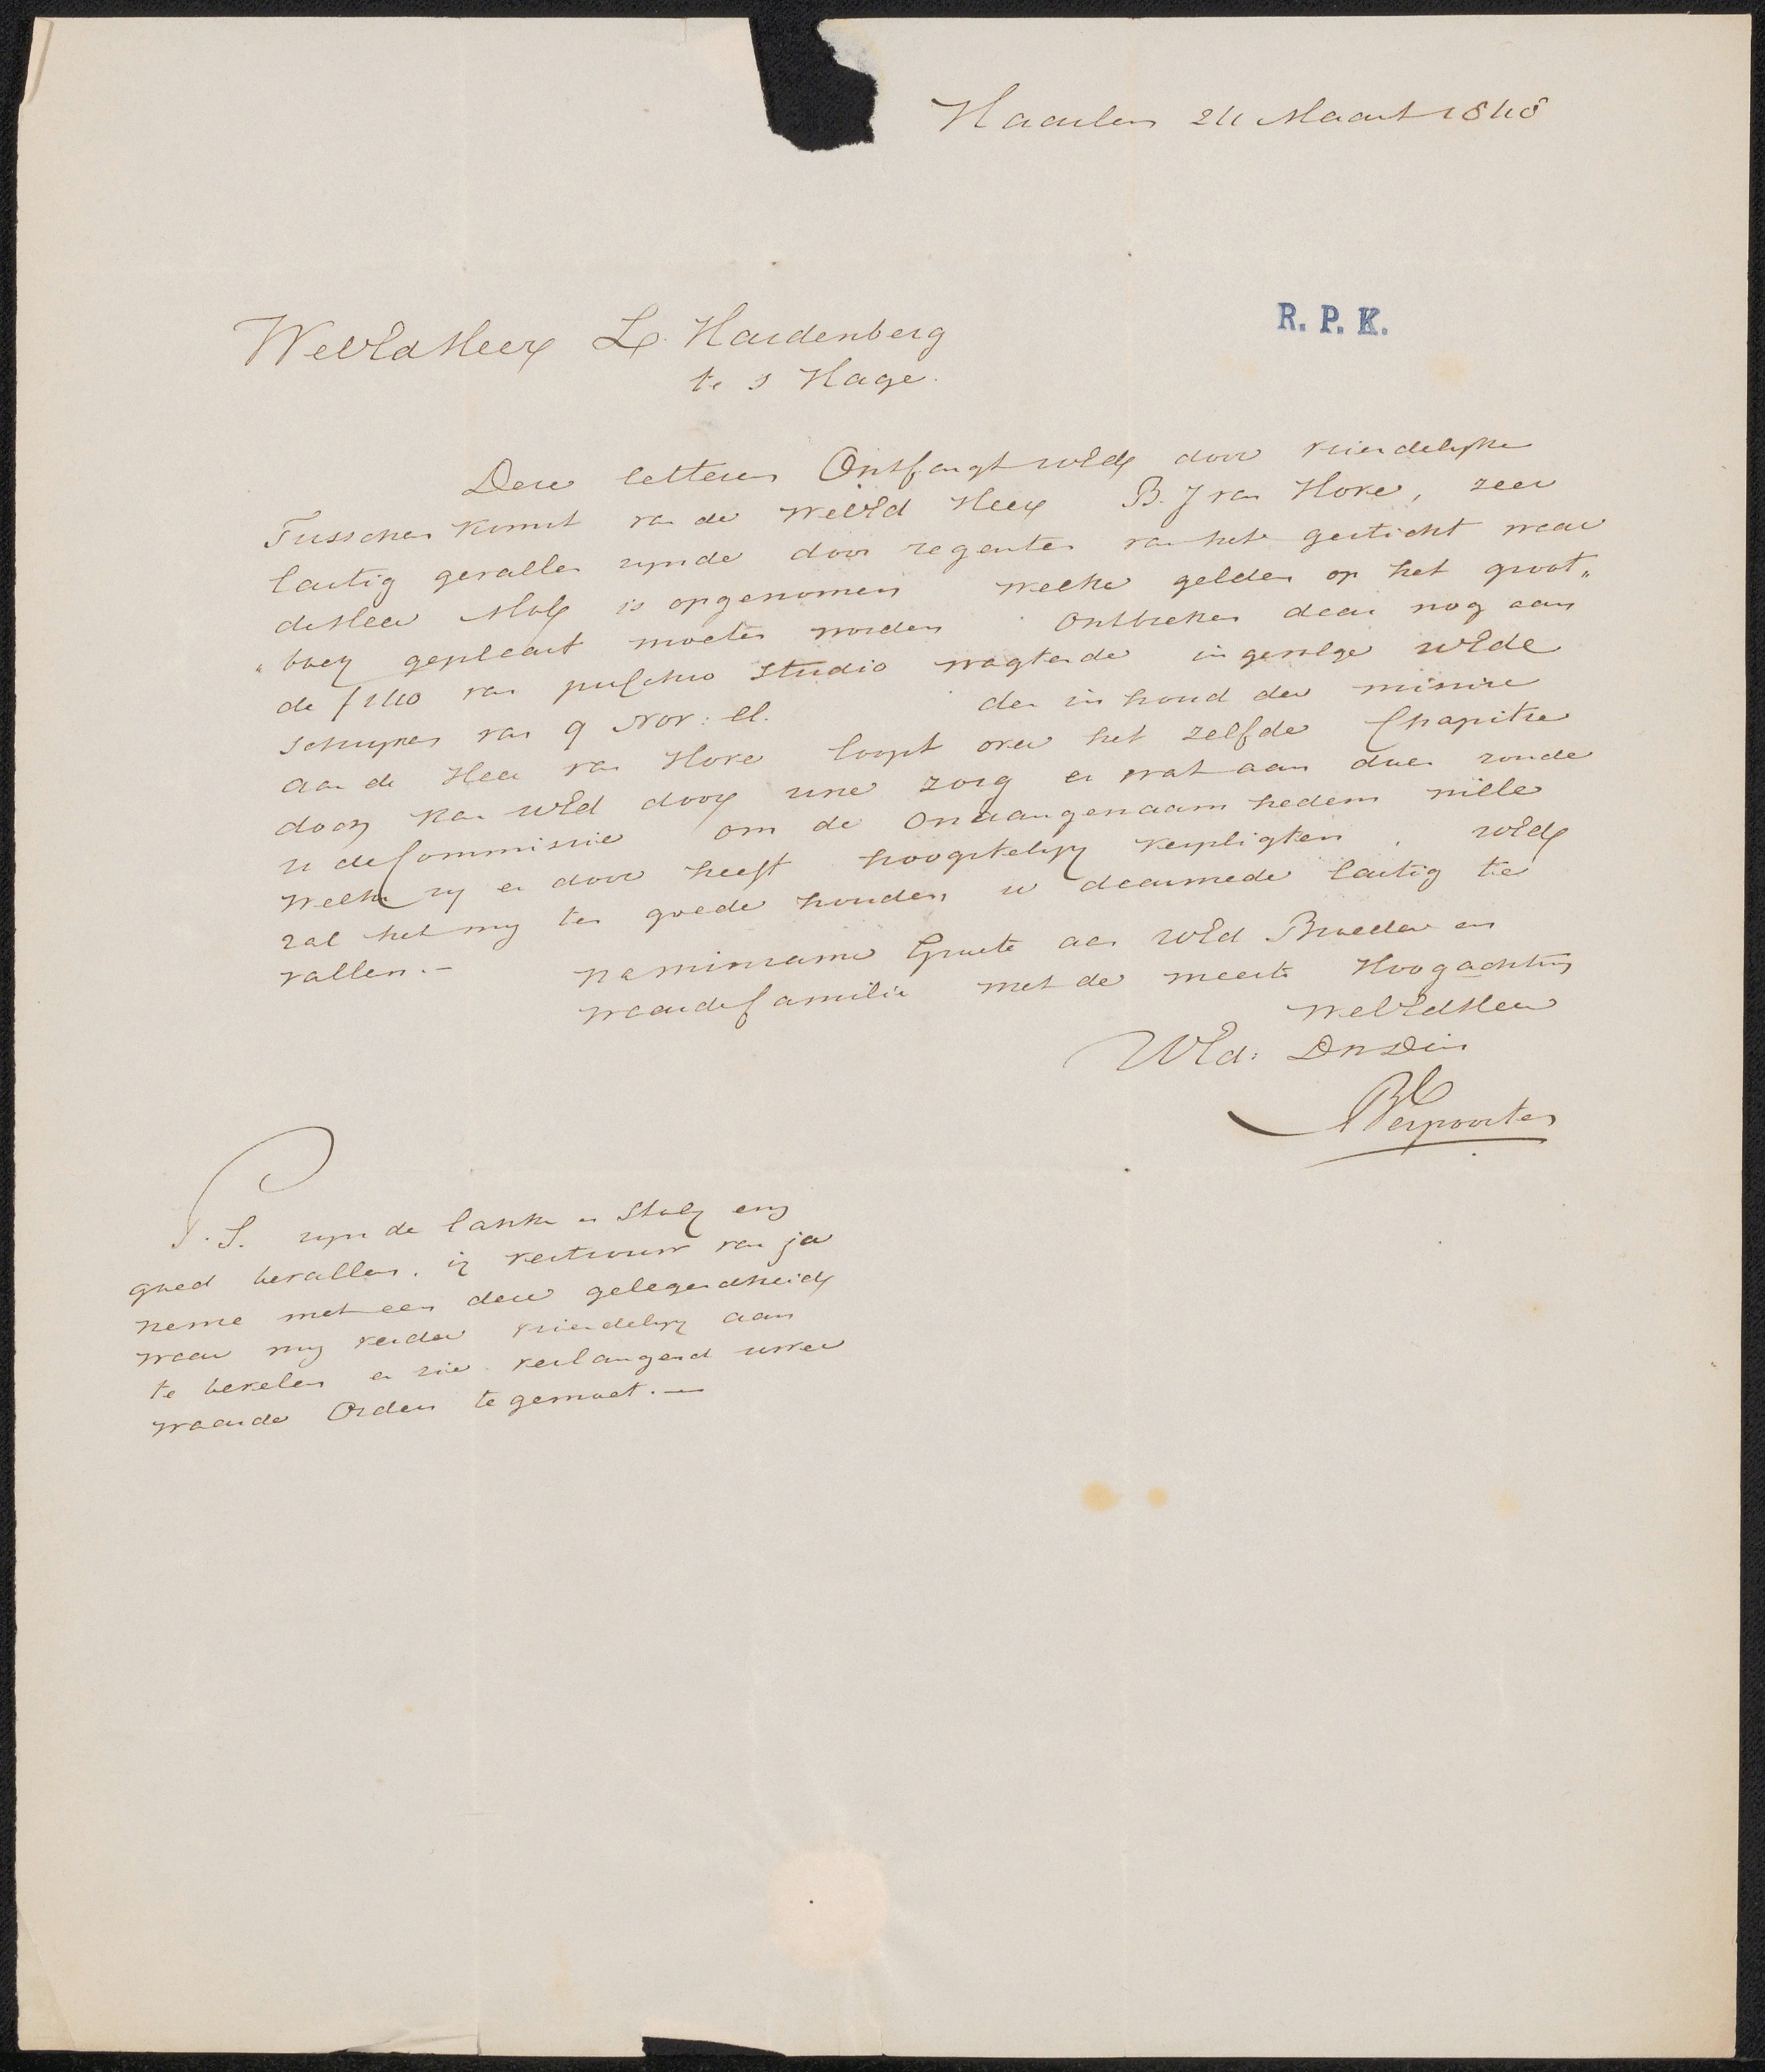 Haarlem 24 Maart 1848
R. P. K.
WelEdHeer L. Hardenberg
te s Hage.
Deze letteren Ontfangt UEd door vriendelyke
Tusschen komst van de WelEd Heer B. J van Hove, zeer
lastig gevallen zynde door regenten van het gesticht waar
de Heer is opgenomen welke gelden op het groot„
„boek geplaatst moeten worden Ontbreken daar nog aan
de f 140 van pulchro Studio wagtende ingevolge UEde
schryven van 9 Nov: ll. den inhoud der missive
aan de Heer van Hove loopt over het zelfde Chapitre
doch kan UEd door uwe zorg er wat aan doen zoude
U de Commissie om de Onaangenaamheden wille
welke zy er door heeft hoogstelyk verpligten, UEd
zal het my ten goede houden U daarmede lastig te
vallen.-
na minzame Groete aan UEd Broeder en
waarde familie met de meeste Hoogachting
WelEdHeer
UEd: DWDien
Verpoorten
P.S. zyn de lakke en Stok enz
goed bevallen. ik vertrouw van ja
neme met een deze gelegendheid
waar my verder vriendelyk aan
te bevelen en zie verlangend uwer
waarde Orders te gemoet.-